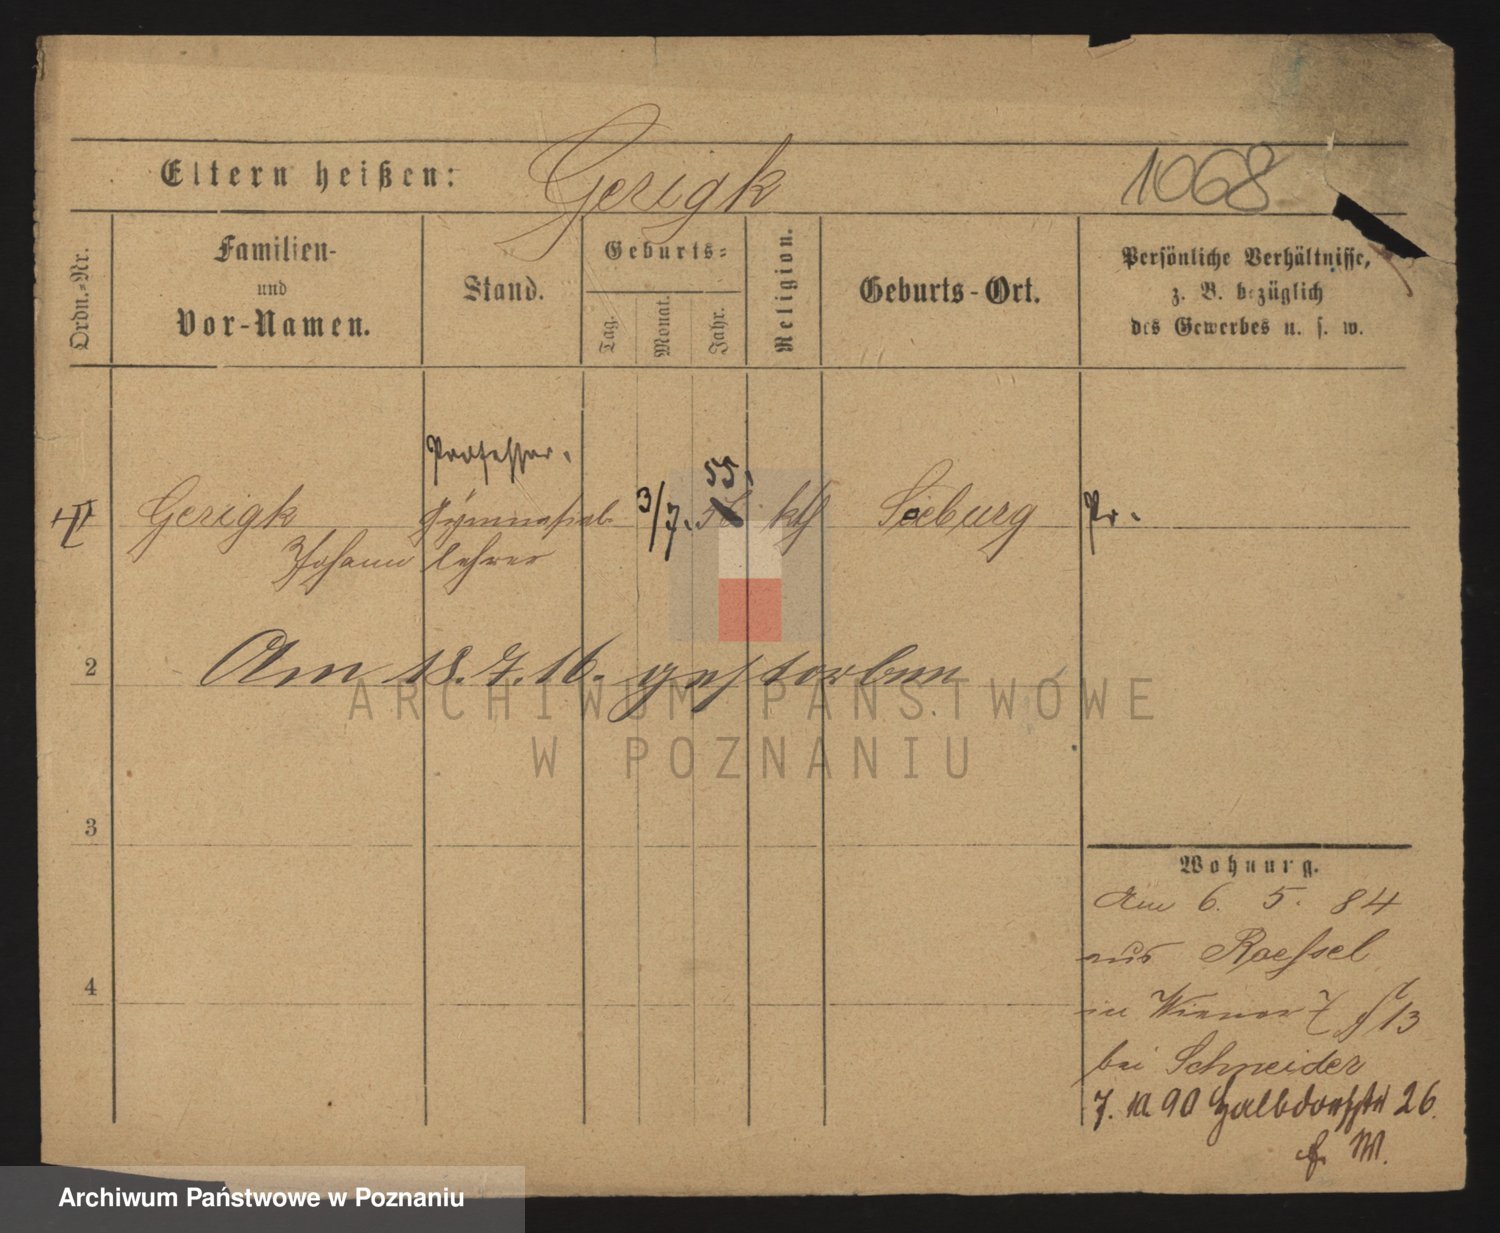 Eltern heißen: Gerigk 1068
Ordn.-Nr.
Familien-
und
Vor-Namen.
Stand.
Geburts-
Tag.
Monat.
Jahr.
Religion.
Geburts-Ort.
Persönliche Verhältnisse,
z. B. bezüglich
des Gewerbes u. s. w.
Professor.
55.
Gerigk Gymnasial 3/7. kth Seeburg Pr.
Johann lehrer
2 Am 18.7.16. gestorben
ARCHIWUM PAŃSTWOWE
W POZNANIU
3
Wohnung.
Am 6. 5. 84
aus Roessel
4
in Wiener 7 13
bei Schneider
7. 10 90 Halbdorfstr 26.
Archiwum Państwowe w Poznaniu